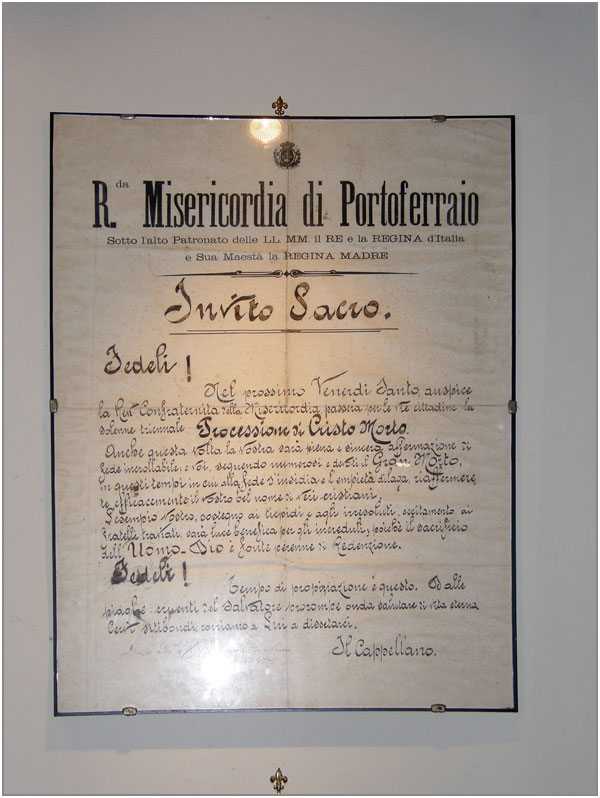 R.da Misericordia di Portoferraio
Sotto l'alto Patronato delle LL. MM. il RE e la REGINA d'Italia
e Sua Maestà la REGINA MADRE
Invito Sacro.
Fedeli!
Nel prossimo Venerdì Santo, auspice
la Confraternita della Misericordia passerà per le vie cittadine la
solenne triennale Processione di Cristo Morto.
Anche questa volta la Vostra sarà piena e sincera affermazione di
fede incrollabile; e Voi, seguendo numerosi e devoti il Gran Morto,
in questi tempi in cui alla fede s'insidia e l'empietà dilaga, riaffermere
te efficacemente il Vostro bel nome di veri cristiani.
L'esempio Vostro, sostegno ai tiepidi e agli irresoluti, eccitamento ai
fratelli traviati, sarà luce benefica per gli increduli, poichè il sacrificio
dell'Uomo-Dio è fonte perenne di Redenzione.
Fedeli!
Tempo di propiziazione è questo. Dalle
piaghe cruenti del Salvatore prorompe onda salutare di vita eterna.
Cervi sitibondi, corriamo a Lui a dissetarci.
Il Cappellano.